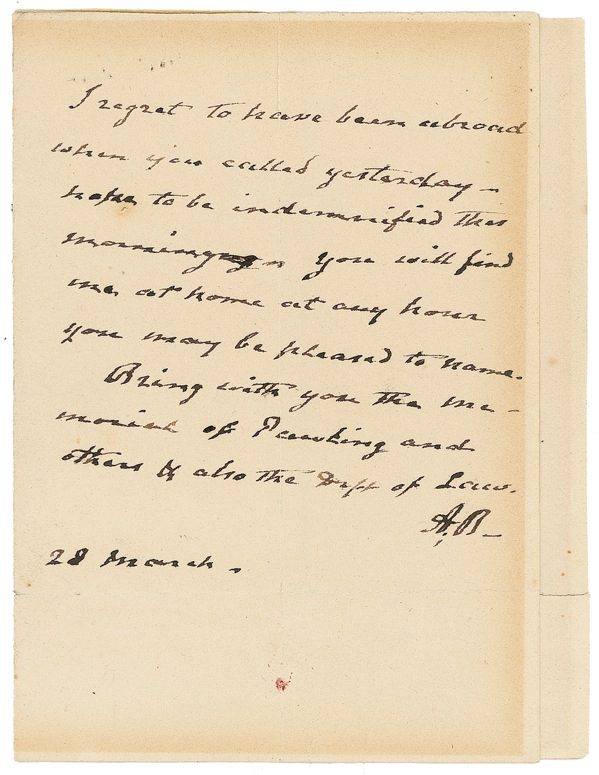 I regret to have been abroad
when you called yesterday -
hope to be indemnified this
morning you will find
me at home at any hour
you may be pleased to name.
Bring with you the me -
morial of Pawling and
others & also the Dft of Law.
A.B -
28 March .